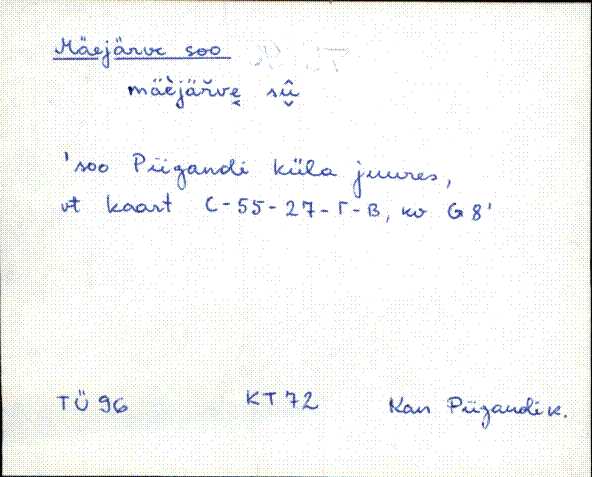 Mäejärve soo
mäèjäř̌ve̬ sû̬
'soo Piigandi küla juures,
vt kaart C-55-27-Г-В, kv G8'
TÜ 96 KT 72 Kan Piigandi k.